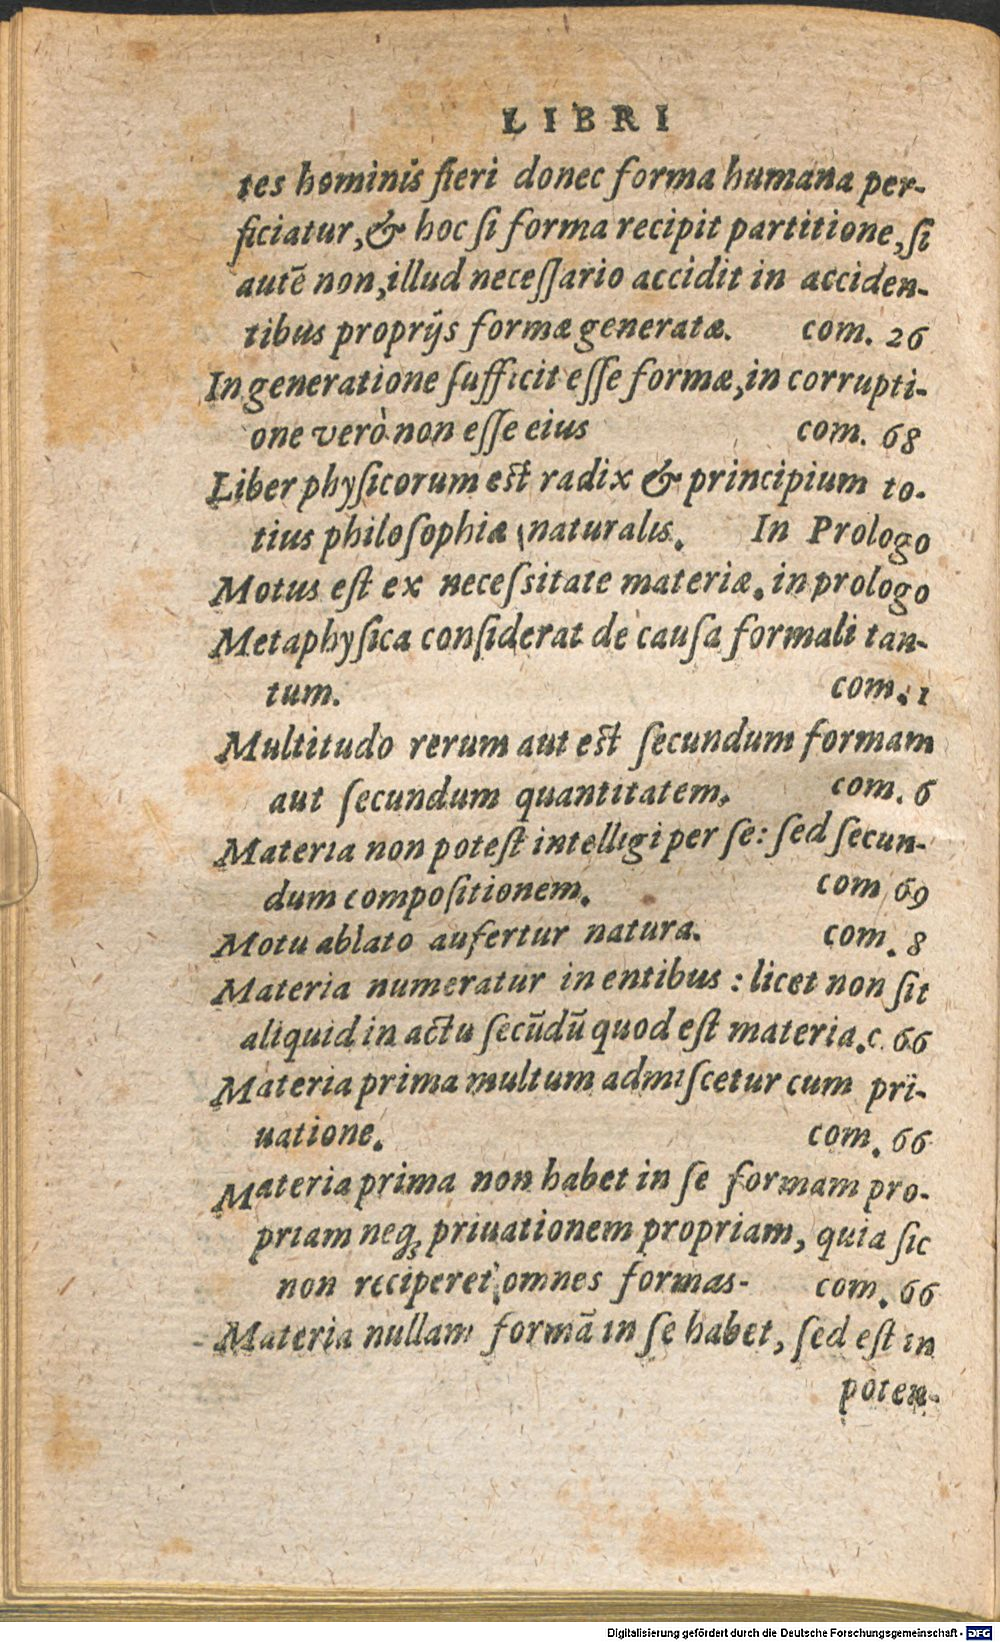 LIBRI
tes hominis fieri donec forma humana per-
ficiatur, & hoc si forma recipit partitione, si
autē non, illud necessario accidit in acciden-
tibus proprijs formæ generatæ. com. 26
In generatione sufficit esse formæ, in corrupti-
one verò non esse eius com. 68
Liber physicorum est radix & principium to-
tius philosophiæ naturalis. In Prologo
Motus est ex necessitate materiæ. in prologo
Metaphysica considerat de causa formali tan-
tum. com. 1
Multitudo rerum aut est secundum formam
aut secundum quantitatem. com. 6
Materia non potest intelligi per se: sed secun-
dum compositionem. com 69
Motu ablato aufertur natura. com. 8
Materia numeratur in entibus : licet non sit
aliquid in actu secūdū quod est materia. c. 66
Materia prima multum admiscetur cum pri-
uatione. com. 66
Materia prima non habet in se formam pro-
priam neq; priuationem propriam, quia sic
non reciperet omnes formas- com. 66
Materia nullam formā in se habet, sed est in
poten-
Digitalisierung gefördert durch die Deutsche Forschungsgemeinschaft - DFG